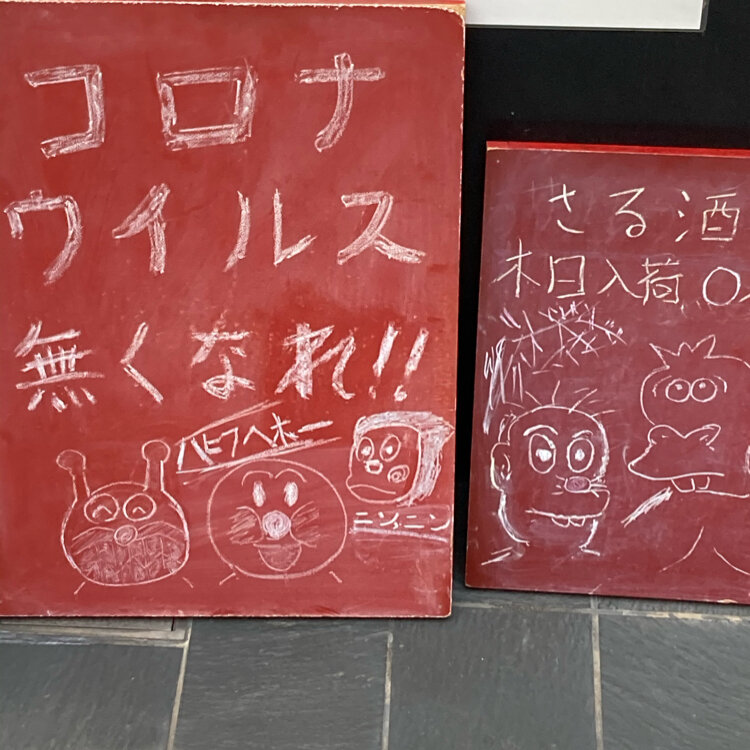 コロナ
ウイルス
無くなれ!!
ハヒフヘホー
ニンニン
さる酒
本日入荷